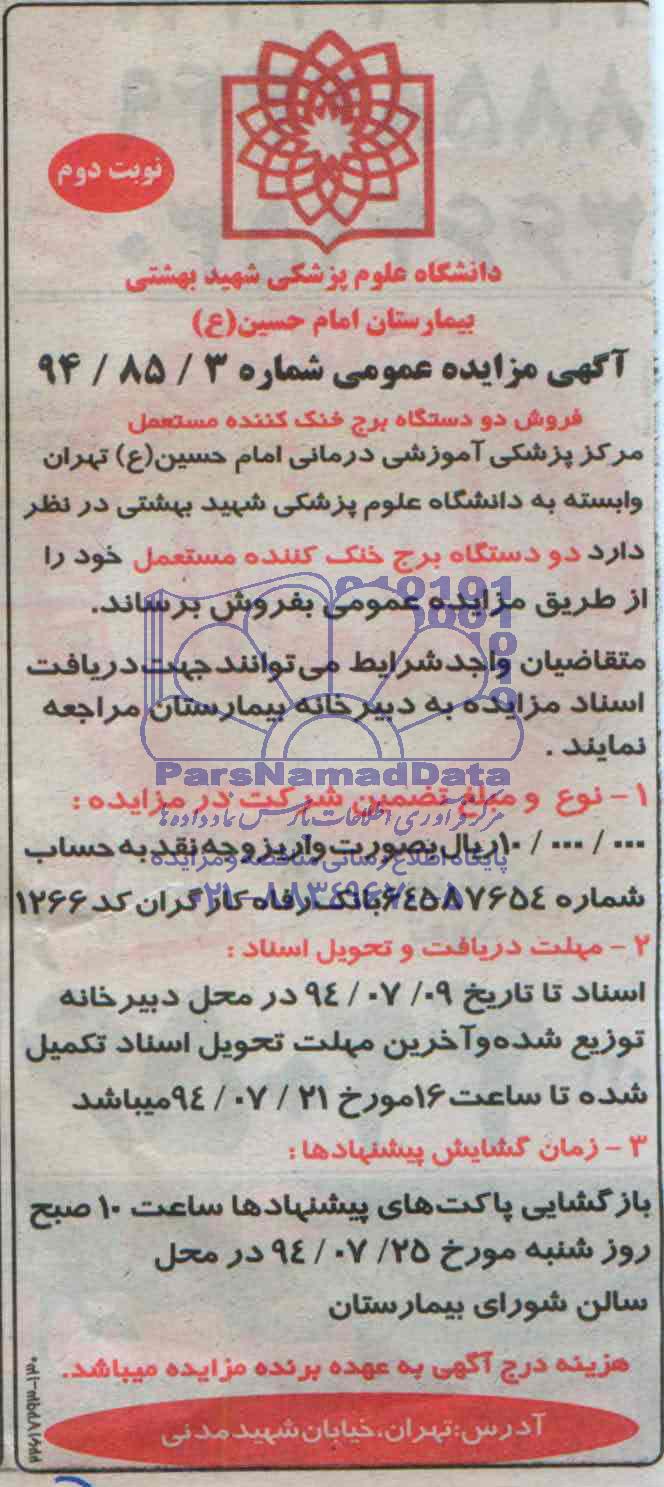 نوبت دوم
دانشگاه علوم پزشکی شهید بهشتی
بیمارستان امام حسین(ع)
آگهی مزایده عمومی شماره ۳ / ۸۵ / ۹۴
فروش دو دستگاه برج خنک کننده مستعمل
مرکز پزشکی آموزشی درمانی امام حسین(ع) تهران
وابسته به دانشگاه علوم پزشکی شهید بهشتی در نظر
دارد دو دستگاه برج خنک کننده مستعمل خود را
از طریق مزایده عمومی بفروش برساند.
متقاضیان واجد شرایط می توانند جهت دریافت
اسناد مزایده به دبیرخانه بیمارستان مراجعه
نمایند .
ParsNamadData
۱- نوع و مبلغ تضمین شرکت در مزایده :
مرکز فرآوری اطلاعات پارس نماد داده ها
۰۰۰ / ۰۰۰ / ۱۰ریال بصورت واریز وجه نقد به حساب
پایگاه اطلاع رسانی مناقصه و مزایده
شماره ۶٤۵۸۷۶۵٤بانک رفاه کارگران کد ۱۲۶۶
۰۲۱-۸۸۳۴۹۶۷۰-۵
۲- مهلت دریافت و تحویل اسناد :
اسناد تا تاریخ ۰۹/ ۰۷ / ۹٤ در محل دبیرخانه
توزیع شده وآخرین مهلت تحویل اسناد تکمیل
شده تا ساعت ۱۶مورخ ۲۱ / ۰۷ / ۹٤میباشد
۳- زمان گشایش پیشنهادها :
بازگشایی پاکت های پیشنهادها ساعت ۱۰ صبح
روز شنبه مورخ ۲۵/ ۰۷ / ۹٤ در محل
سالن شورای بیمارستان
هزینه درج آگهی به عهده برنده مزایده میباشد.
آدرس:تهران،خیابان شهید مدنی